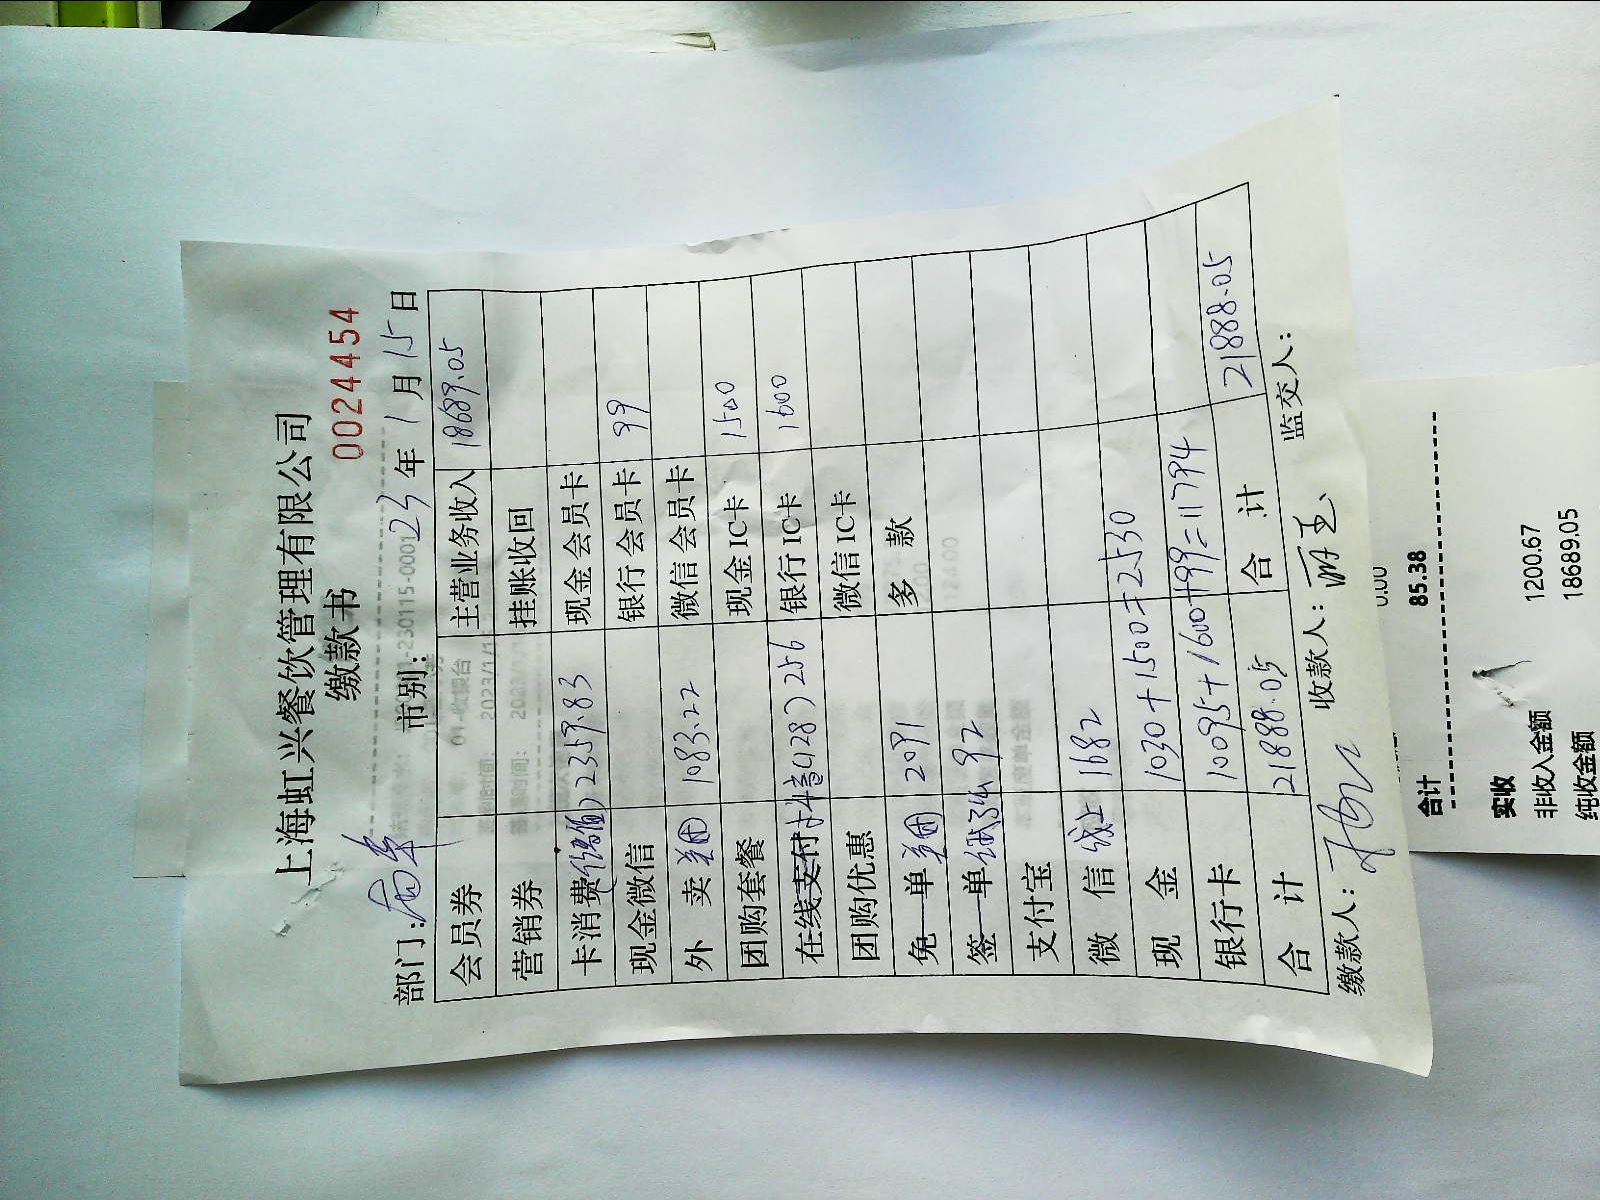 上海虹兴餐饮管理有限公司
缴款书
0024454
部门: 市别: 23 年 1 月 15 日
会员券 主营业务收入 18689.05
营销券 挂账收回
卡消费(储值) 2359.83 现金会员卡
现金微信 银行会员卡 99
外 卖 美团 1083.22 微信会员卡
团购套餐 现金IC卡 1500
在线支付 (128) 256 银行IC卡 1600
团购优惠 微信IC卡
免 单 美团 2091 多 款
签 单 92
支付宝
微 信 线上 1682
现 金 1030+1500=2530
银行卡 10095+1600+99=11794
合 计 21888.05 合 计 21888.05
缴款人: 收款人: 监交人:
0.00
合计 85.38
实收
非收入金额 1200.67
纯收金额 18689.05